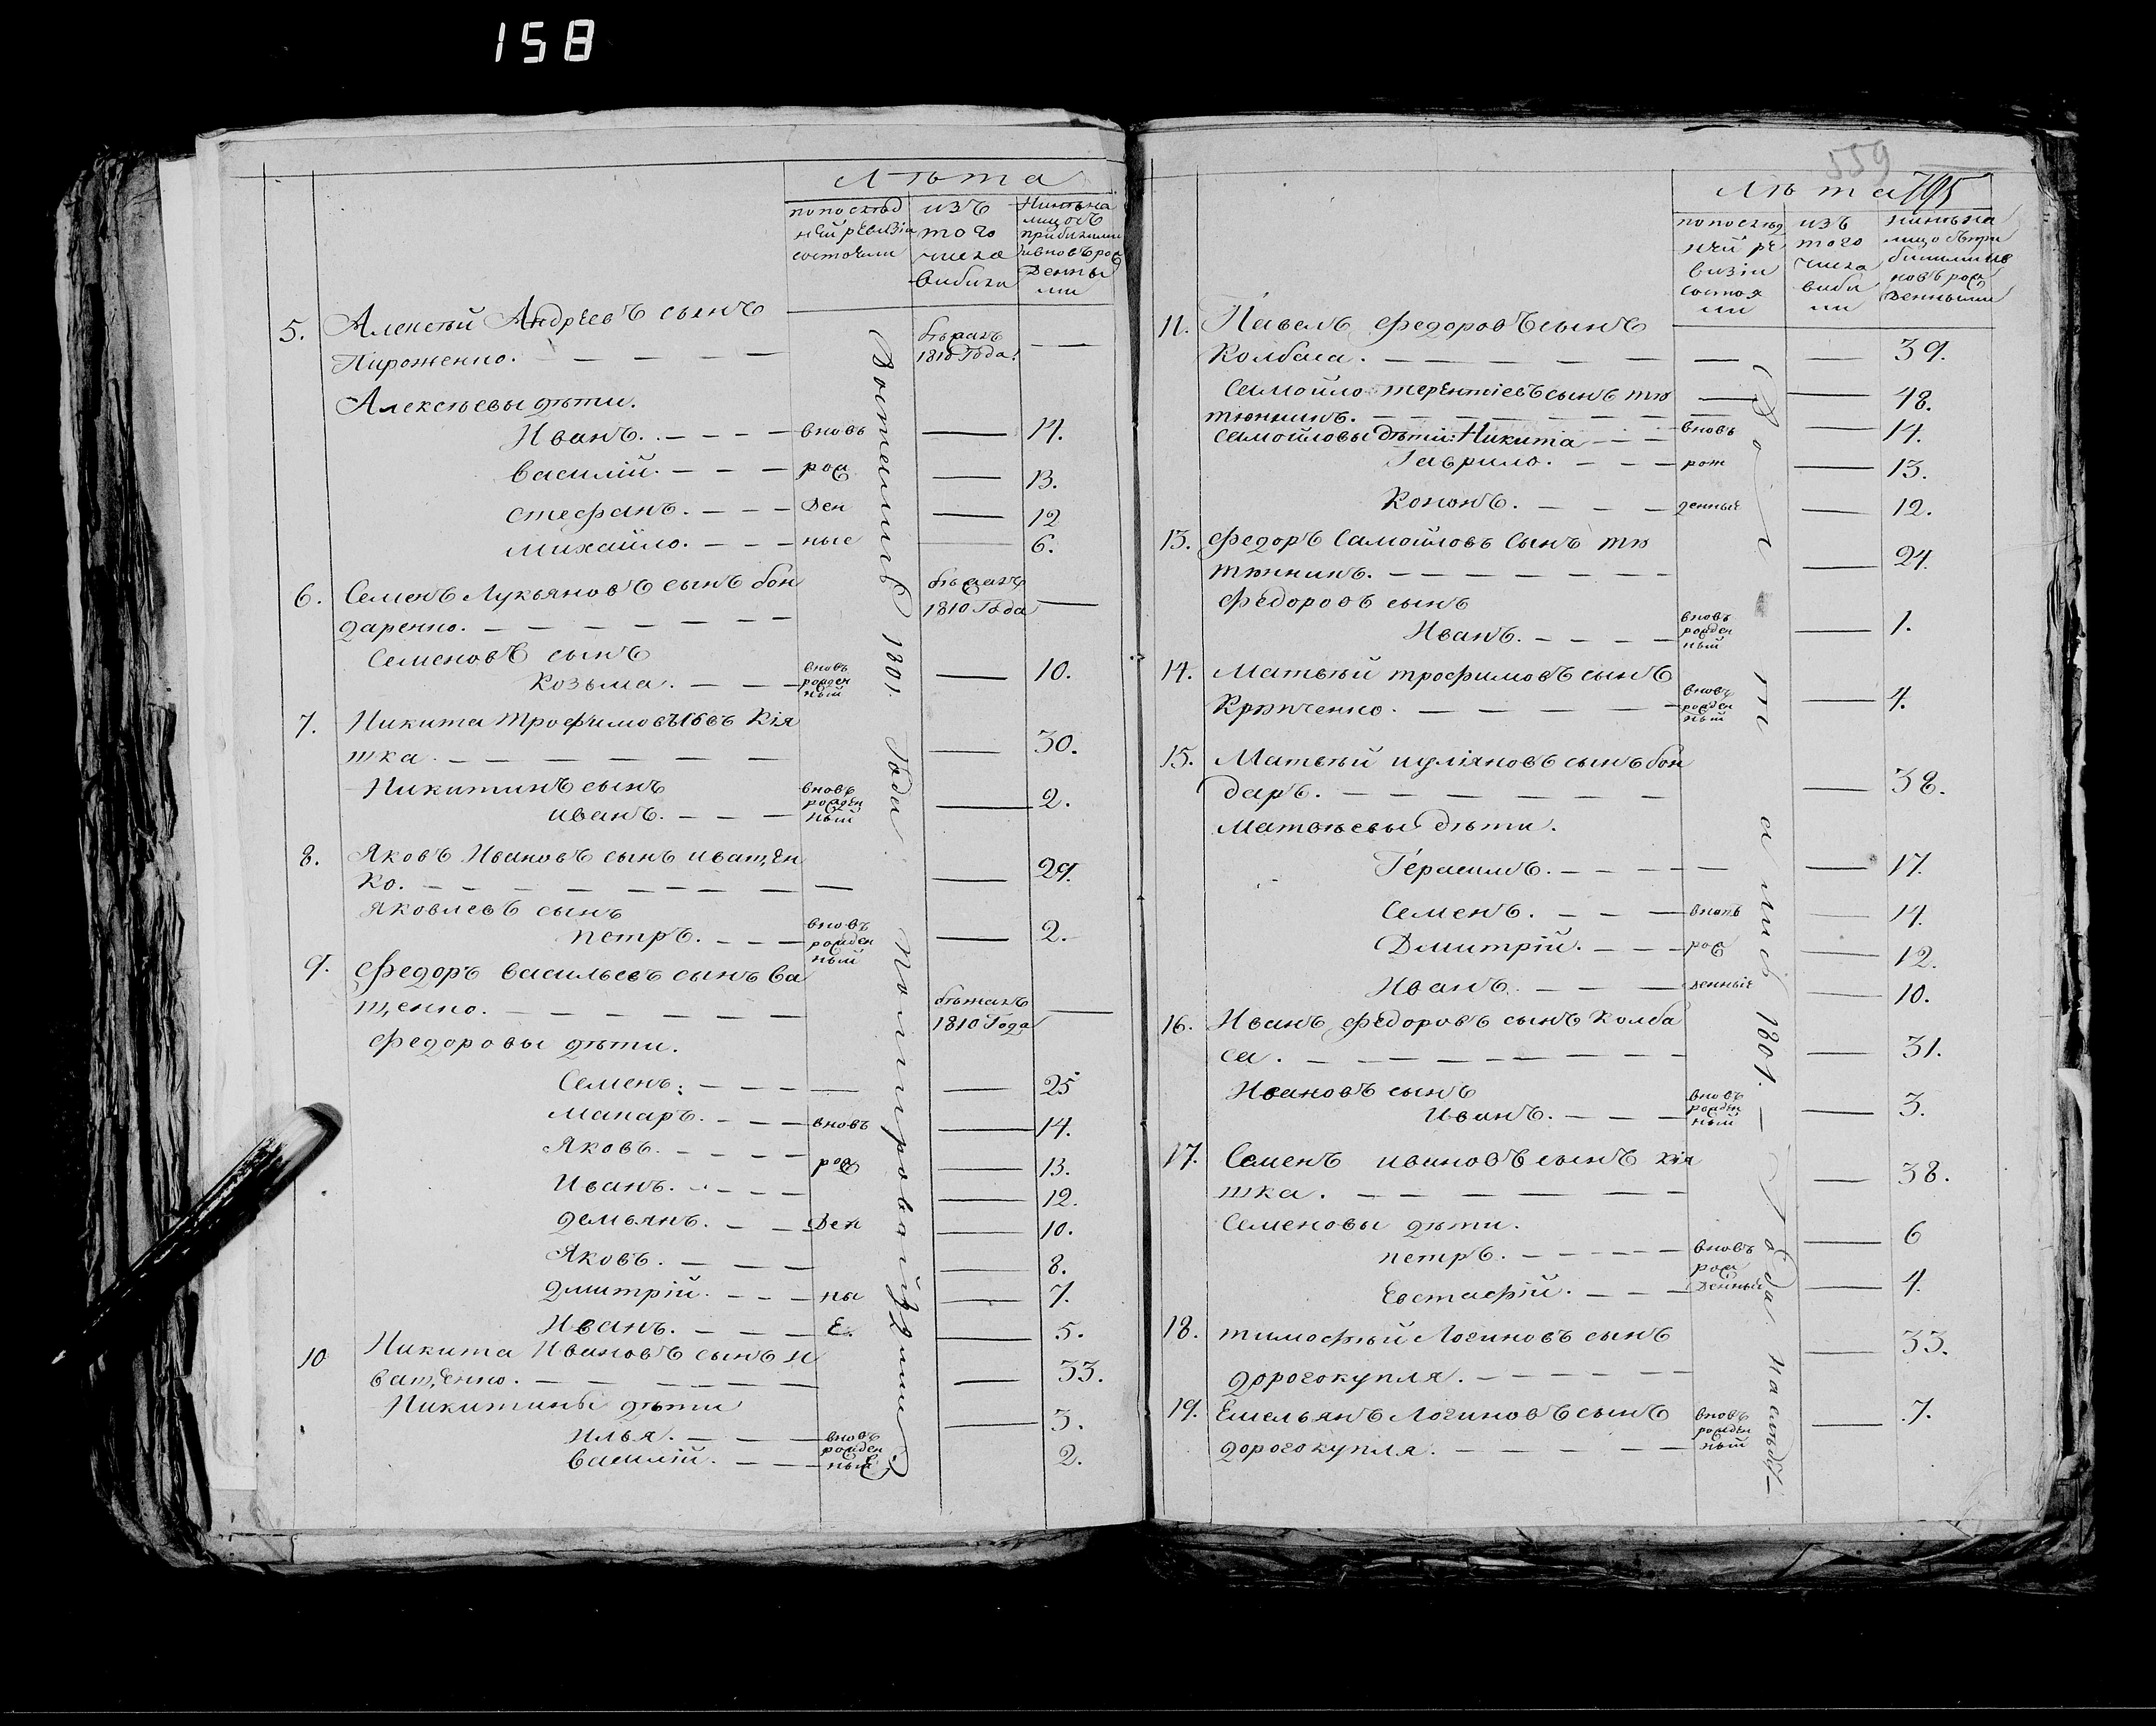 158
Лѣта
попослѣд
ней ревизіи
состояли
изъ
того
числа
выбыли
Нынѣ на
лицо съ
прибылыми
ивновь рож
денны
ми
5. Алексѣй Андреевъ сынъ
Пироженко.
бѣжалъ
1810 Года.
Алексѣевы дѣти.
Иванъ. вновь 14.
василій. рож 13.
стефанъ. Ден 12
михайло. ные 6.
6. Семенъ Лукьяновъ сынъ бон
даренко.
бѣжалъ
1810 Года
Семеновъ сынъ
Козьма. вновь рожден ный 10.
7. Никита Трофимовъ Кія
шка. 30.
Никитинъ сынъ
иванъ. вновь рожден ный 2.
8. Яковъ Ивановъ сынъ иващен
ко. 29.
Яковлевъ сынъ
петръ. вновь рожден ный 2.
9. Федоръ васильевъ сынъ Ва
щенко.
бѣжалъ
1810 Года
Федоровы дѣти.
Семенъ. 25
Макаръ. вновь 14.
Яковъ. рож 13.
Иванъ. 12.
демьянъ. Ден 10.
Яковъ. 8.
дмитрій. ны 7.
Иванъ. Е. 5.
10 Никита Ивановъ сынъ И
ващенко. 33.
Никитины дѣти
Илья. вновь 3.
василій. рожден ные 2.
1801. Года.
559
795
Лѣта
попослѣд
ней ре
визіи
состоя
ли
изъ
того
числа
выбы
ли
нынѣ на
лицо съ при
былыми ив
новь рож
денными
11. Павелъ Федоровъ сынъ
Колбаса. 39.
Самойло терентіевъ сынъ тю
тюнникъ. 48.
самойловы дѣти: Никита вновь 14.
Гаврило. рож 13.
Кононъ. денные 12.
13. Федоръ Самойловъ Сынъ тю
тюнникъ. 24.
Федоровъ сынъ
Иванъ. вновь рожден ный 1.
14. Матвѣй трофимовъ сынъ
Крюченко. вновь рожден ный 4.
15. Матвѣй иуліяновъ сынъ бон
даръ. 38.
матвѣевы дѣти.
Герасимъ. 17.
Семенъ. вновь 14.
Дмитрій. рож 12.
Иванъ. денные 10.
16. Иванъ Федоровъ сынъ Колба
са. 31.
Ивановъ сынъ
Иванъ. вновь рожден ный 3.
17. Семенъ ивановъ сынъ кія
шка. 38.
Семеновы дѣти.
петръ. вновь рож 6
Евстафій. Денные 4.
18. тимофѣй Логиновъ сынъ
дорогокупля. 33.
19. Емельянъ Логиновъ сынъ
дорогокупля. вновь рожден ный 7.
1801. Года